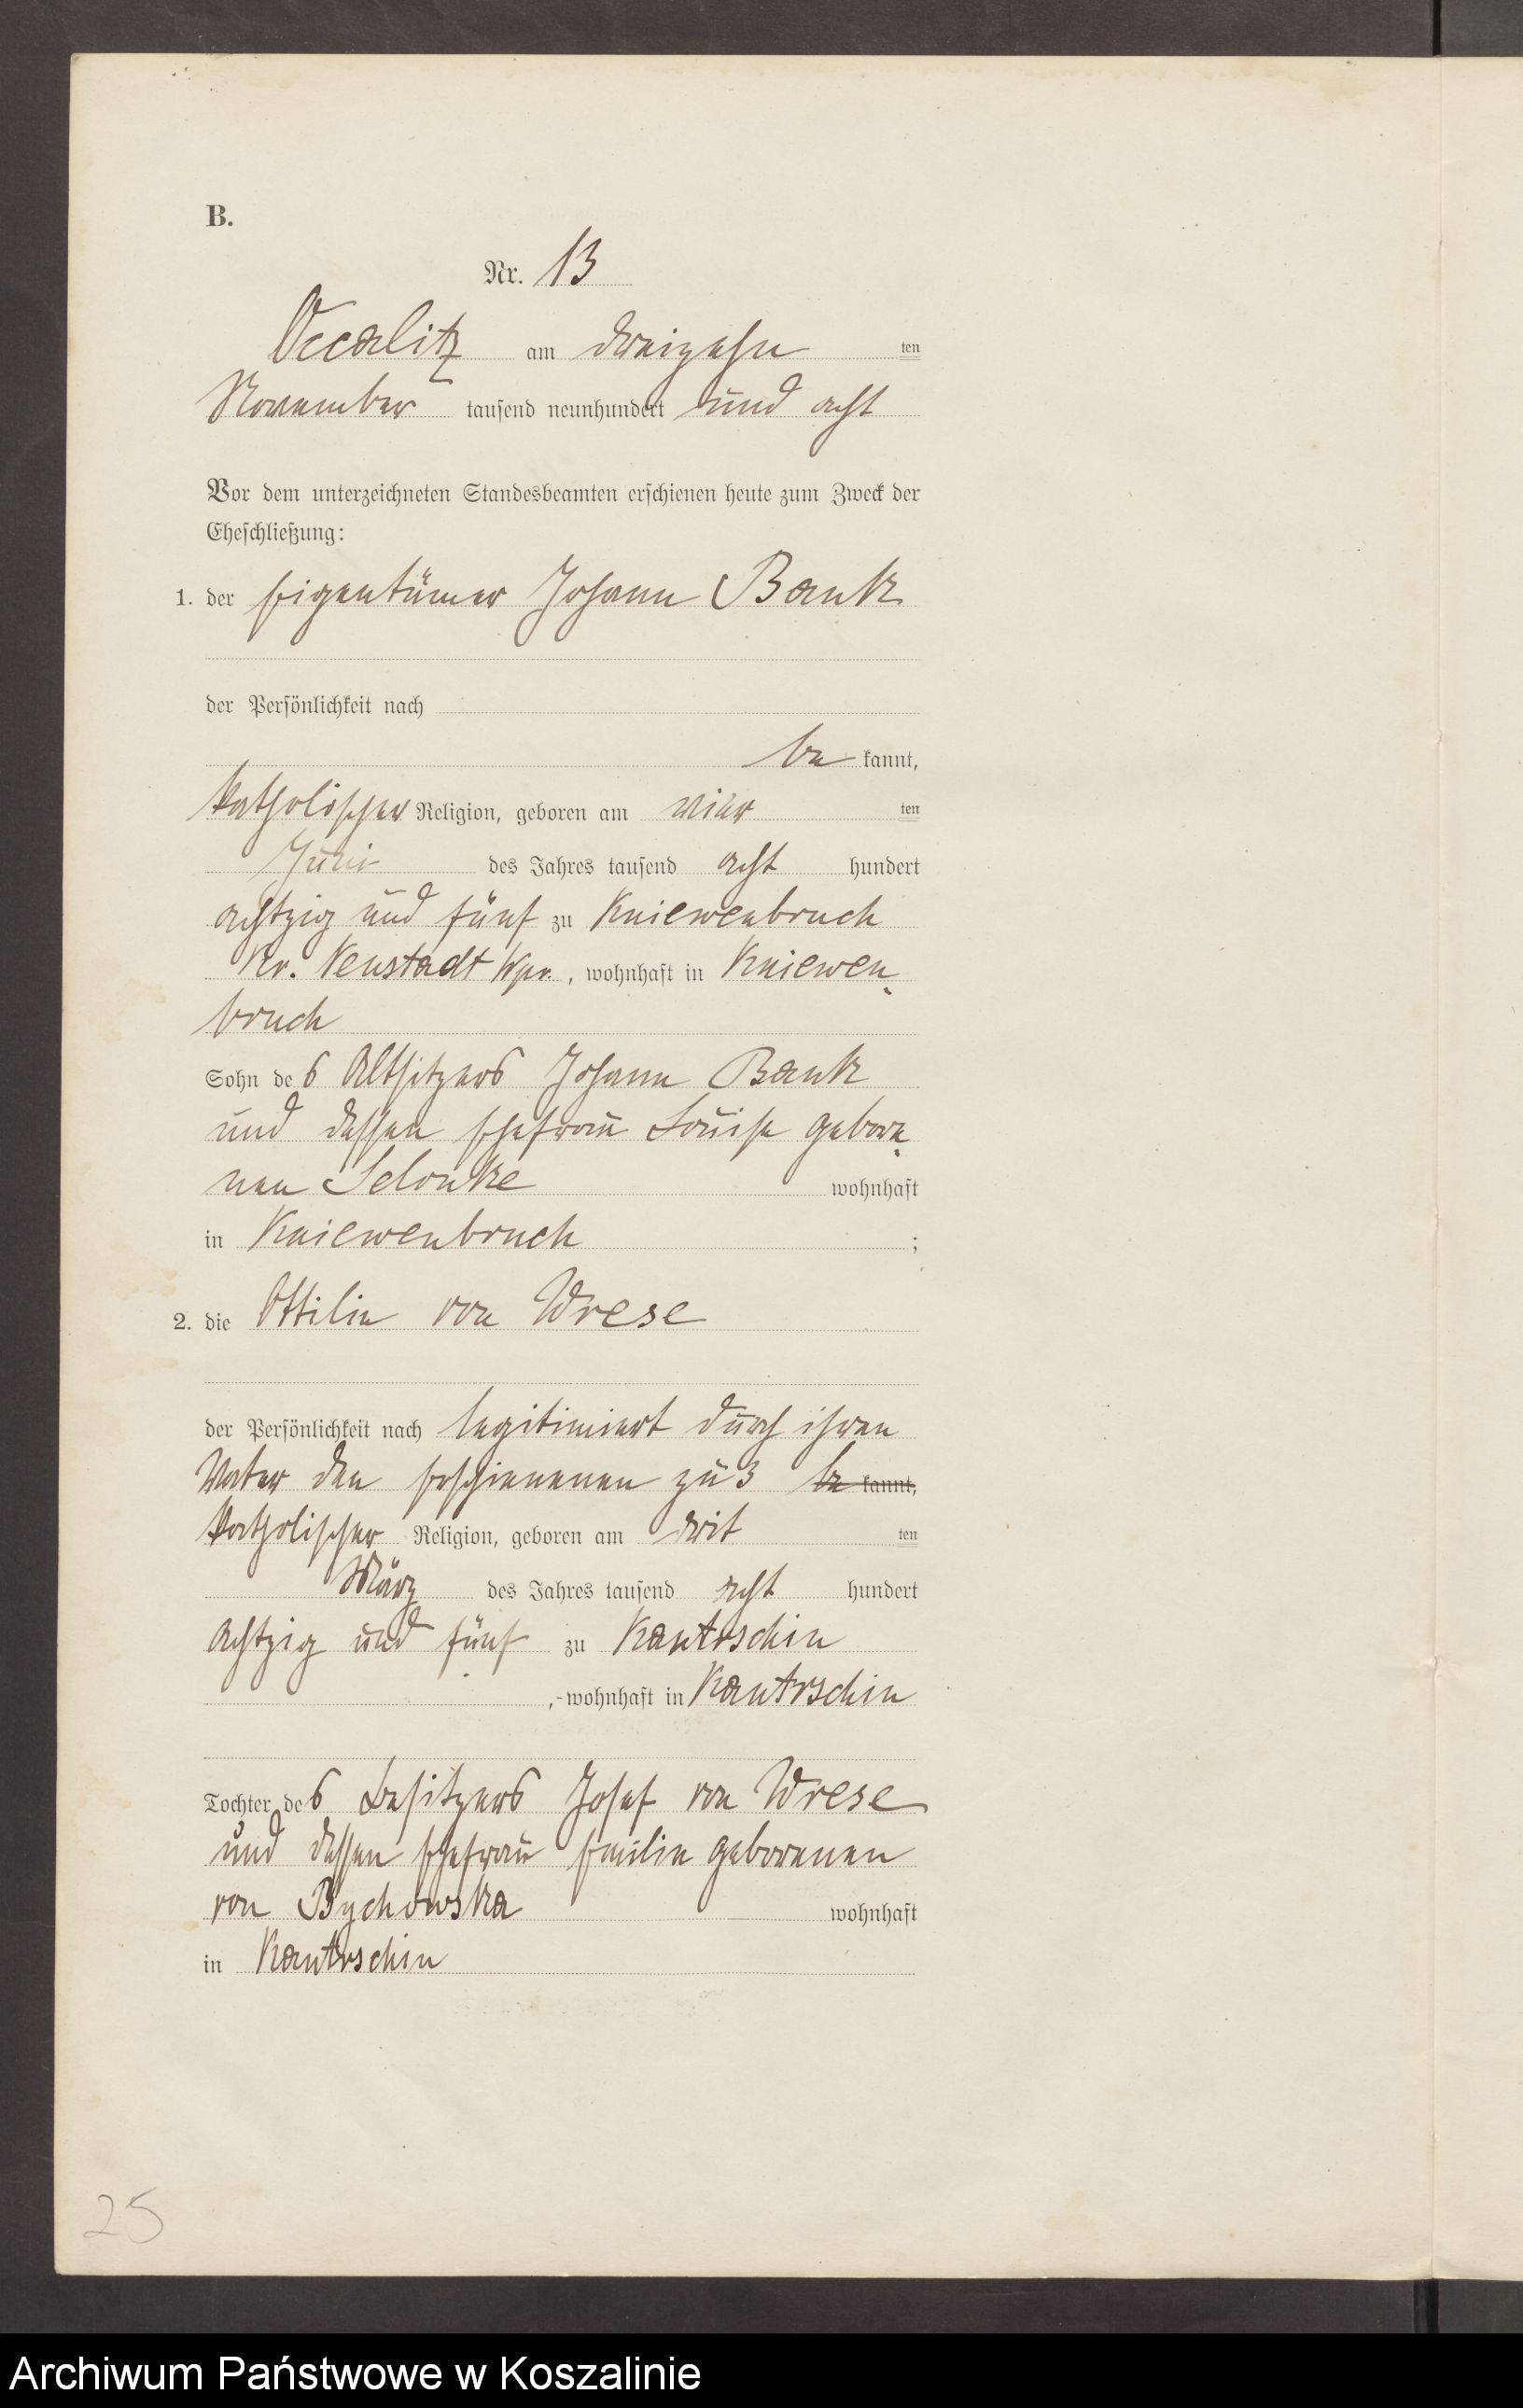 B.
Nr. 13
Occalitz am dreizehn ten
November tausend neunhundert und acht
Vor dem unterzeichneten Standesbeamten erschienen heute zum Zweck der
Eheschließung:
1. der Eigentümer Johann Bank
der Persönlichkeit nach
be kannt,
katholischer Religion, geboren am vier ten
Juni des Jahres tausend acht hundert
achtzig und fünf zu Kniewenbruch
Kr. Neustadt Wpr. , wohnhaft in Kniewen-
bruch
Sohn des Altsitzers Johann Bank
und dessen Ehefrau Louise gebore-
nen Selonke wohnhaft
in Kniewenbruch ;
2. die Ottilie von Wrese
der Persönlichkeit nach legitimiert durch ihren
Vater den Erschienenen zu 3 be kannt,
katholischer Religion, geboren am drit ten
März des Jahres tausend acht hundert
achtzig und fünf zu Kantrschin
, wohnhaft in Kantrschin
Tochter des Besitzers Josef von Wrese
und dessen Ehefrau Emilie geborenen
von Bychowska wohnhaft
in Kantrschin
25
Archiwum Państwowe w Koszalinie